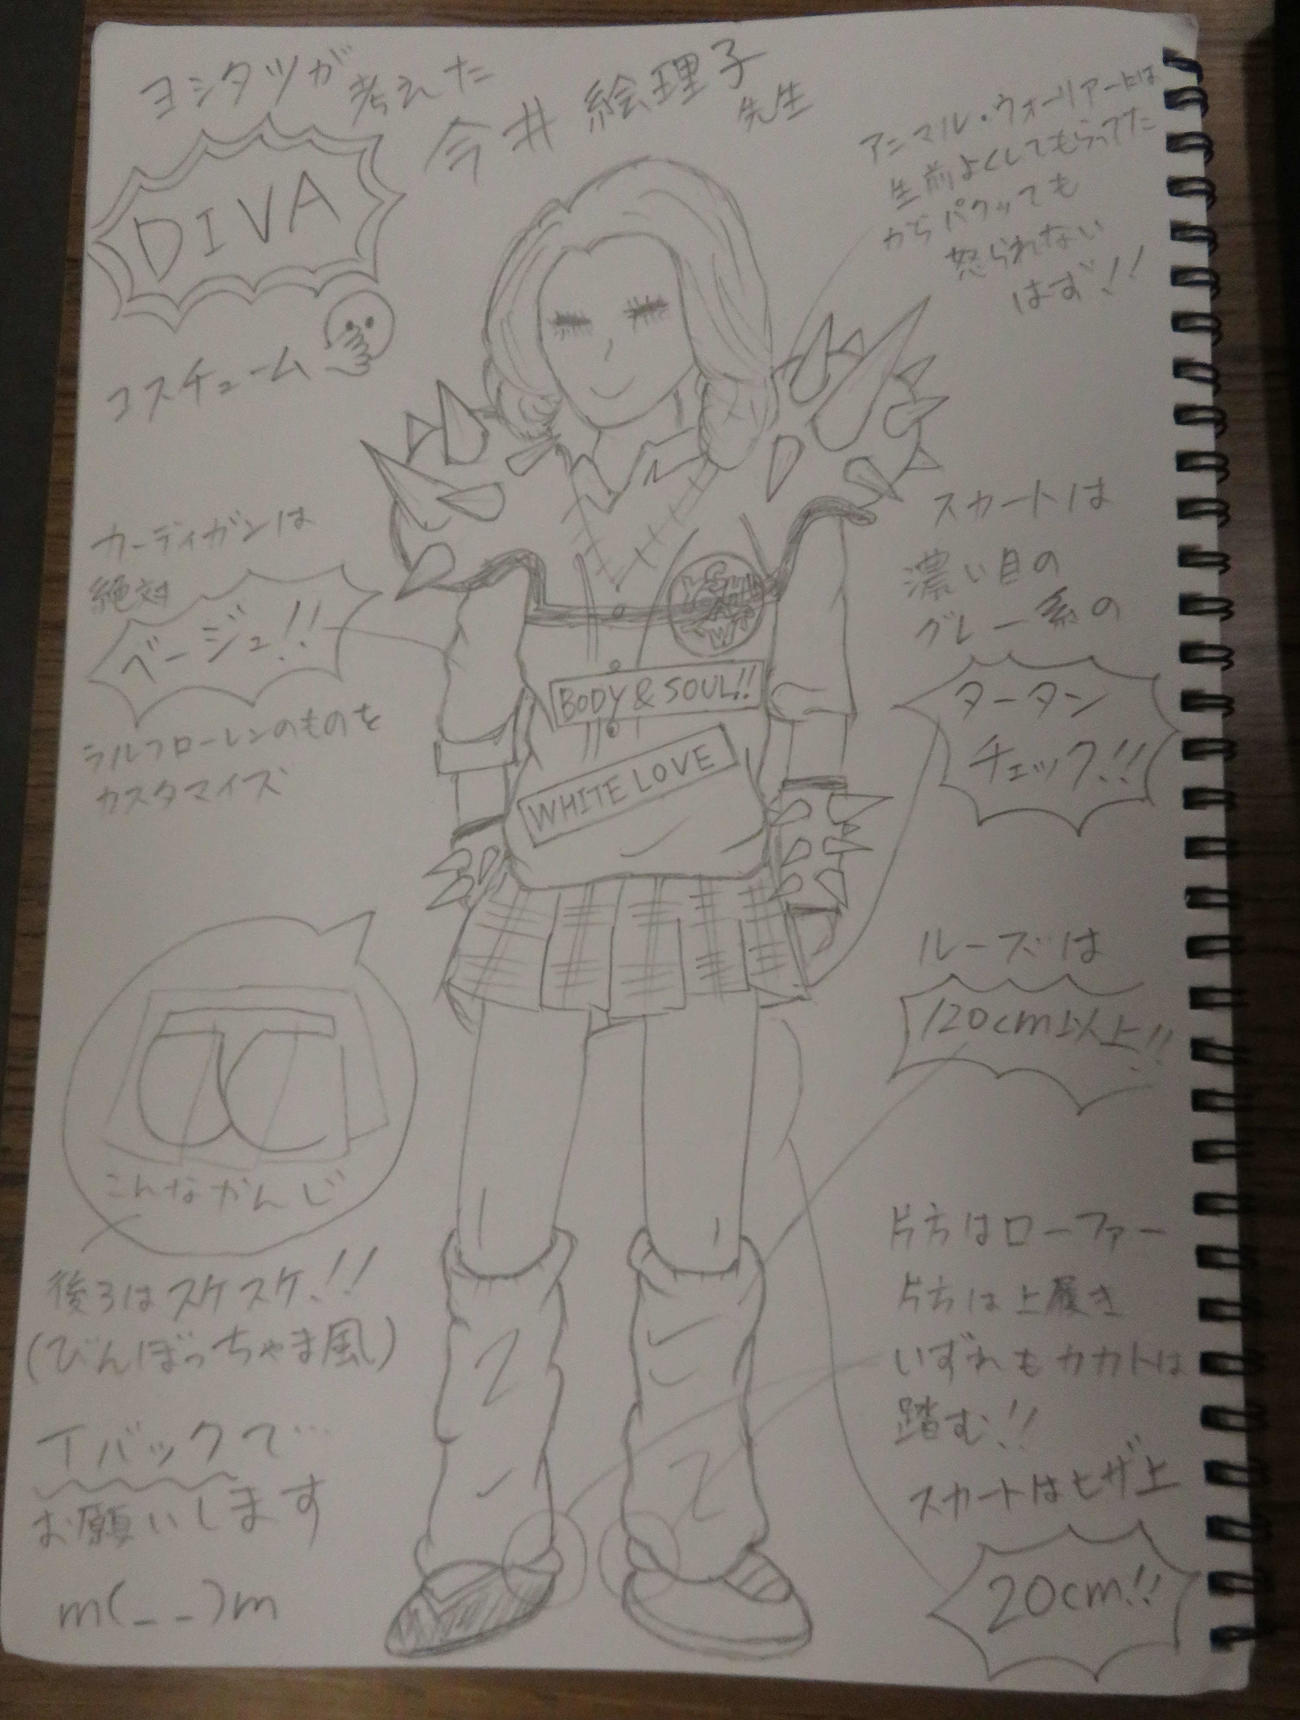 ヨシタツが
考えた
今井 絵理子
先生
DIVA
コスチューム
アニマル・ウォーリアー上は
生前よくしてもらってた
からパクッても
怒られない
はず!!
カーディガンは
絶対
ベージュ!!
ラルフローレンのものを
カスタマイズ
スカートは
濃い目の
グレー系の
タータン
チェック!!
YOSHI
TATSU
BODY & SOUL!!
WHITE LOVE
ルーズは
120cm以上!!
こんなかんじ
後ろはスケスケ!!
(びんぼっちゃま風)
Tバックで…
お願いします
m(_ _)m
片方はローファー
片方は上履き
いずれもカカトは
踏む!!
スカートはヒザ上
20cm!!